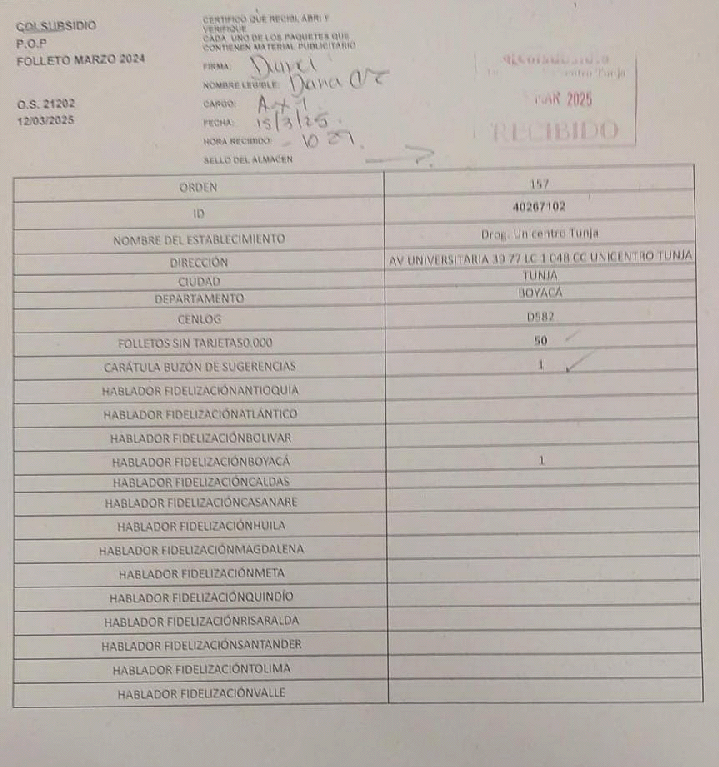 COLSUBSIDIO
P.O.P
FOLLETO MARZO 2024
O.S. 21202
12/03/2025
CERTIFICO QUE RECIBI, ABRI Y
VERIFIQUE
CADA UNO DE LOS PAQUETES QUE
CONTIENEN MATERIAL PUBLICITARIO
FIRMA:
NOMBRE LEGIBLE: Dana
CARGO:
FECHA: 15/3/25
HORA RECIBIDO: 10
SELLO DEL ALMACEN
centro Tunja
MAR 2025
RECIBIDO
ORDEN 157
ID 40267102
NOMBRE DEL ESTABLECIMIENTO Drog. Un centro Tunja
DIRECCIÓN AV UNIVERSITARIA 39 77 LC 1 048 CC UNICENTRO TUNJA
CIUDAD TUNJA
DEPARTAMENTO BOYACÁ
CENLOG D582
FOLLETOS SIN TARJETA50.000 50
CARÁTULA BUZÓN DE SUGERENCIAS 1
HABLADOR FIDELIZACIÓNANTIOQUIA
HABLADOR FIDELIZACIÓNATLÁNTICO
HABLADOR FIDELIZACIÓNBOLIVAR
HABLADOR FIDELIZACIÓNBOYACÁ 1
HABLADOR FIDELIZACIÓNCALDAS
HABLADOR FIDELIZACIÓNCASANARE
HABLADOR FIDELIZACIÓNHUILA
HABLADOR FIDELIZACIÓNMAGDALENA
HABLADOR FIDELIZACIÓNMETA
HABLADOR FIDELIZACIÓNQUINDÍO
HABLADOR FIDELIZACIÓNRISARALDA
HABLADOR FIDELIZACIÓNSANTANDER
HABLADOR FIDELIZACIÓNTOLIMA
HABLADOR FIDELIZACIÓNVALLE